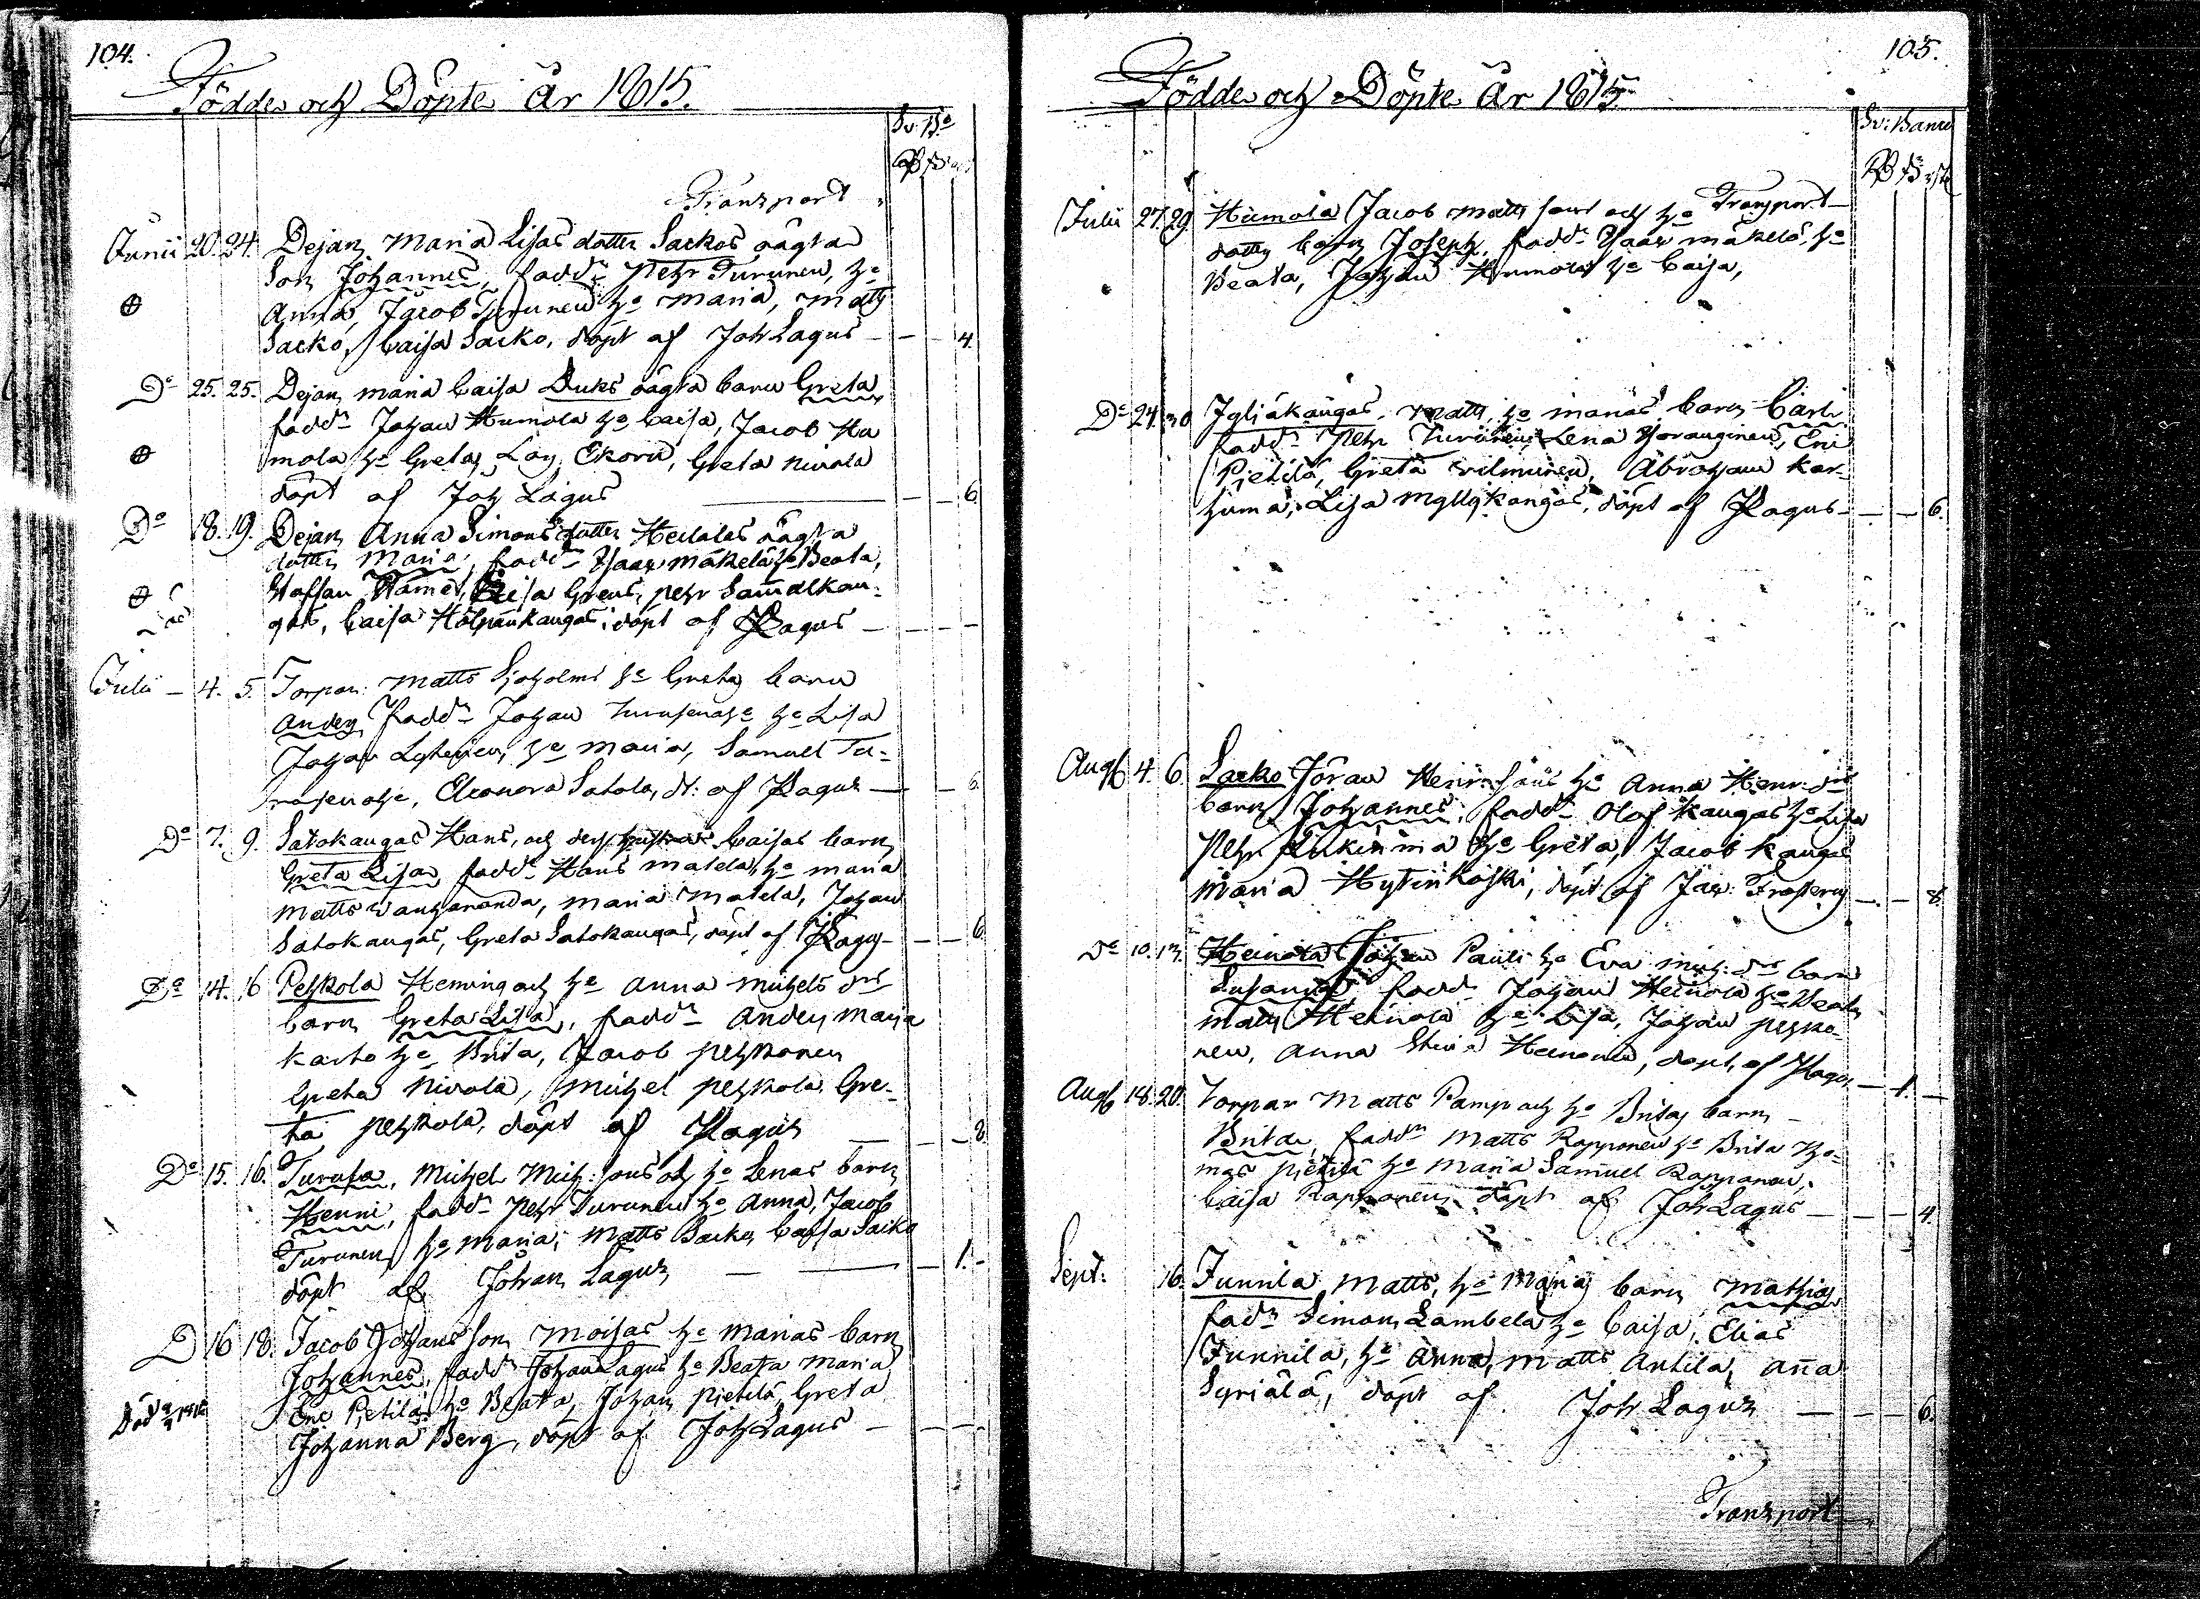 104.
Födde och Döpte År 1815.
Sv. B:o
Transport
Junii 20. 24. Dejan Maria Lisas dotter Sackos oägta
Son Johannes, fadd:r Pehr Turunen, h:o
Anna, Jacob Turunen h:o Maria, Matts
Sacko, Caisa Sacko, döpt af Joh Lagus - - 4.
D:o 25. 25. Dejan Maria Caisa oägta barn Greta
fadd:r Johan Humola h:o Caisa, Jacob Hu
mola h:o Greta, Ekorn, Greta Nivala
döpt af Joh Lagus - - 6
D:o 18. 19. Dejan Anna Simons dotter oägta
dotter Maria, fadd:r Isaac Mäkelä h:o Beata,
Staffan Greus, Pehr Samalkan-
gas, Caisa döpt af JLagus - - -
Julii - 4. 5. Torpar: Matts Sjöholms h:o Greta barn
Anders fadd:r Johan h:o Lisa
Johan h:o Maria, Samuel Tu-
Eleonora Satola, d: af JLagus - - 6.
D:o 7. 9. Satokangas Hans, och dess hustrus Caisas barn
Greta Lisa, fadd:r Hans Matela, h:o Maria
Matts Maria Matela, Johan
Satokangas, Greta Satokangas, döpt af JLagus - - 6
D:o 14. 16 Peskola Heming och h:o Anna Michels d:r
barn Greta Lisa, fadd:r Anders
h:o Brita, Jacob Peskonen
Greta Nivala, Michel Peskola, Gre-
ta Peskola, döpt af JLagus - - 8.
D:o 15. 16. Turusa, Michel Mich: sons och h:o Lenas barn
Henric, fadd:r Pehr Turunen h:o Anna, Jacob
Turunen, h:o Maria, Matts Sacko, Caisa Sacko
döpt af Johan Lagus - 1. -
D 16 18. Jacob Johansson Moisas h:o Marias barn
Johannes, fadd:r Johan Lagus h:o Beata Maria
Eric Pietilä h:o Beata, Johan Pietilä, Greta
Johanna Berg, döpt af Joh Lagus - - -
105.
Födde och Döpte År 1815
Sv: Banco
Transport
Julii 27. 29. Humola Jacob Matts sons och h:o
dotters barn Joseph, fadd:r Isaac Mäkelä, h:o
Beata, Johan Humola h:o Caisa,
D:o 24. 30 Matts, h:o Marias barn Carl
fadd:r Pehr Turunen, Lena Eric
Pietilä, Greta Abraham Kar-
huma, Lisa Myllykangas, döpt af JLagus - - 6.
Aug 4. 6. Sacko Jöran Henr: sons h:o Anna Henr: d:rs
barn Johannes, fadd:r Olof Kangas h:o Lisa
Pehr h:o Greta, Jacob Kangas
Maria Hytinkoski, döpt af Jac: Frosterus - - 8.
D:o 10. 13. Heinola Johan Pauli h:o Eva Mich: d:rs barn
Susanna fadd:r Johan Heinola h:o Beata
Matts Heinola h:o Lisa, Johan Pesko-
nen, Anna Heinonen, döpt af JLagus - 1. -
Aug 18. 20. Torpar Matts Pamp och h:o Britas barn
Brita, fadd:r Matts Rapponen h:o Brita Tho-
mas Pietilä h:o Maria Samuel Rapponen,
Caisa Rapponen döpt af Joh Lagus - - 4.
Sept: 16. Junnila Matts, h:o Marias barn Mathias
fadd:r Simon Lambela h:o Caisa, Elias
Junnila, h:o Anna, Matts Antila, Anna
Syriälä, döpt af Joh Lagus - - 6.
Transport